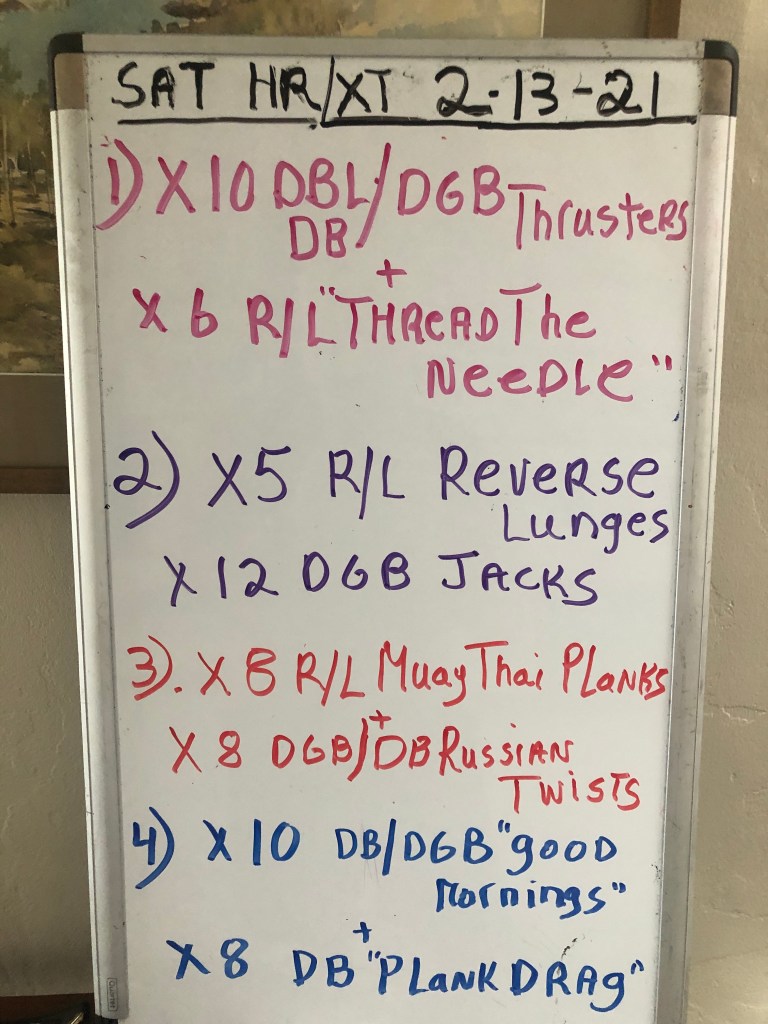 SAT HR/XT 2-13-21
1) X 10 DBL/DGB Thrusters
DB
+
X 6 R/L "THREAD The
NeeDLe"
2) X5 R/L Reverse
Lunges
X 12 DGB JACKS
3). X 8 R/L Muay Thai PLANKS
+
X 8 DGB/DB RUSSIAN
TWISTS
4) X 10 DB/DGB "gooD
Mornings"
+
X 8 DB "PLANK DRAg"